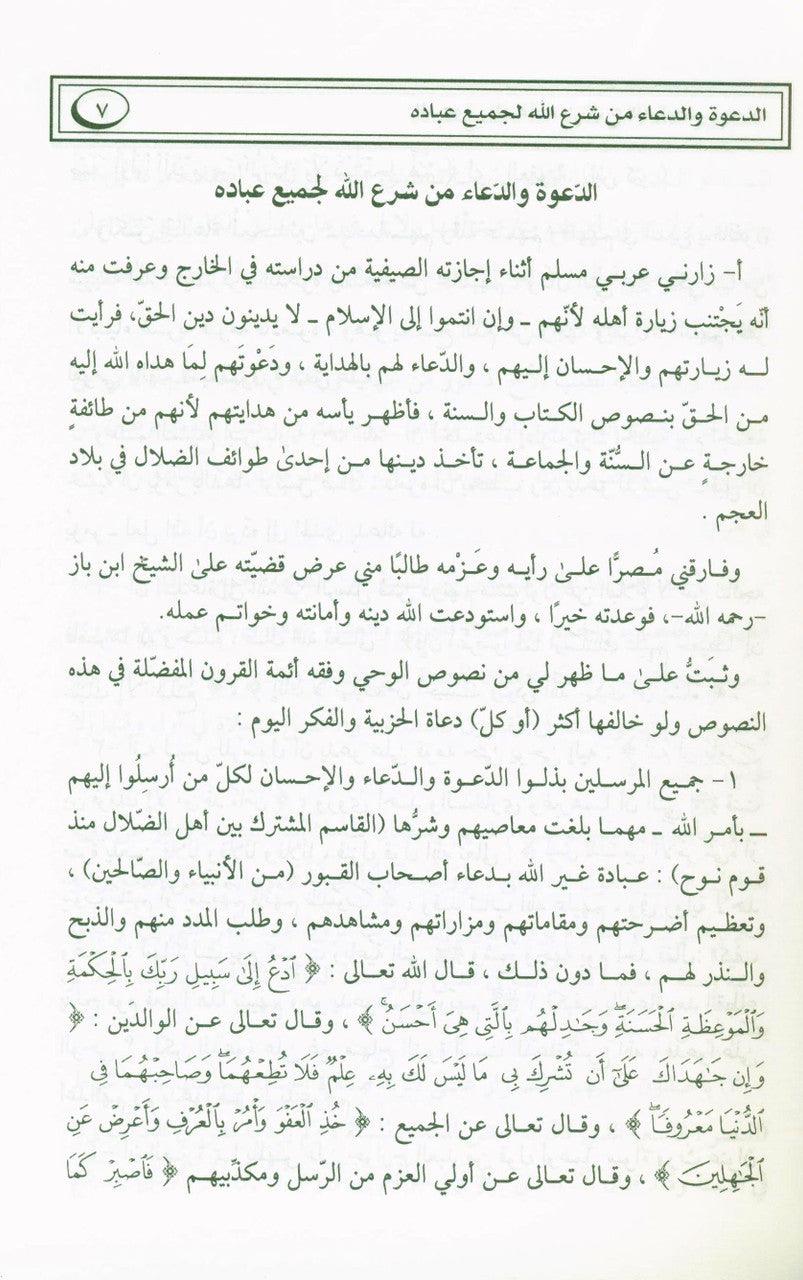 الدعوة والدعاء من شرع الله لجميع عباده
٧
الدّعوة والدّعاء من شرع الله لجميع عباده
أ- زارني عربي مسلم أثناء إجازته الصيفية من دراسته في الخارج وعرفت منه
أنّه يَجْتنب زيارة أهله لأنّهم ــ وإن انتموا إلى الإسلام ــ لا يدينون دين الحقّ، فرأيت
لـه زيـارتهم والإحسـان إليـهم ، والدّعاء لهم بالهداية ، ودَعْوتَهم لمـَا هداه الله إليه
مـن الحقّ بنصوص الكـتاب والسنة ، فأظهـر يأسه من هدايتهم لأنهم من طائفةٍ
خارجةٍ عـن السُّنّة والجماعة ، تأخذ دينهـا مـن إحدىٰ طوائف الضلال في بلاد
العجم .
وفـارقني مُـصرًّا علـىٰ رأيـه وعَـزْمه طالبًا مني عرض قضيّته علىٰ الشيخ ابن باز
-رحمه الله-، فوعدته خيرًا ، واستودعت الله دينه وأمانته وخواتـم عمله.
وثـبَتُّ علـىٰ مـا ظهر لي من نصوص الوحي وفقه أئمة القرون المفضّلة في هذه
النصوص ولو خالفها أكثر (أو كلّ) دعاة الحزبية والفكر اليوم :
١- جميـع المرسلـين بذلـوا الدّعوة والدّعاء والإحسان لكلّ من أُرسِلُوا إليهم
ــ بأمـر اللهـ ــ مهمـا بلغت معاصيهم وشرُّها (القاسم المشترك بين أهل الضلال منذ
قوم نـوح) : عبـادة غير الله بـدعاء أصحـاب القبور (مـن الأنبياء والصّالحين) ،
وتعظيـم أضرحتهم ومقاماتهم ومزاراتهم ومشاهدهم ، وطلب المدد منهم والذبح
والـنذر لهـم ، فمـا دون ذلـك ، قـال الله تعـالى : ﴿ ٱدۡعُ إِلَىٰ سَبِيلِ رَبِّكَ بِٱلۡحِكۡمَةِ
وَٱلۡمَوۡعِظَةِ ٱلۡحَسَنَةِۖ وَجَٰدِلۡهُم بِٱلَّتِي هِيَ أَحۡسَنُۚ ﴾ ، وقـال تعالى عن الوالدين : ﴿
وَإِن جَٰهَدَاكَ عَلَىٰٓ أَن تُشۡرِكَ بِي مَا لَيۡسَ لَكَ بِهِۦ عِلۡمٞ فَلَا تُطِعۡهُمَاۖ وَصَاحِبۡهُمَا فِي
ٱلدُّنۡيَا مَعۡرُوفٗاۖ ﴾ ، وقـال تعالى عن الجميع : ﴿ خُذِ ٱلۡعَفۡوَ وَأۡمُرۡ بِٱلۡعُرۡفِ وَأَعۡرِضۡ عَنِ
ٱلۡجَٰهِلِينَ ﴾ ، وقـال تعـالى عـن أولي العزم مـن الرّسل ومكذّبيهم ﴿ فَٱصۡبِرۡ كَمَا